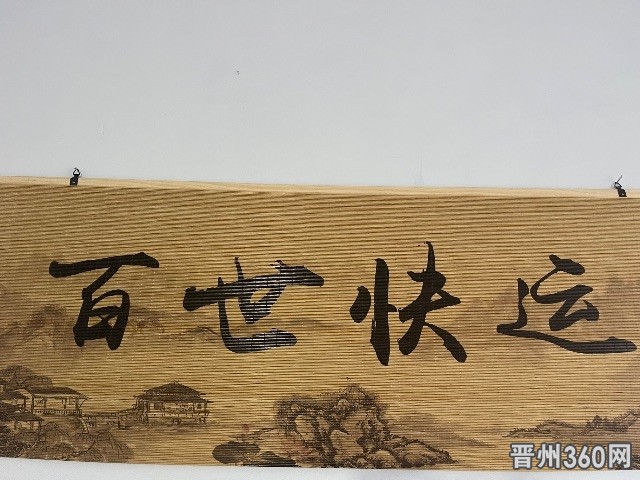 百世快运
晋州360网